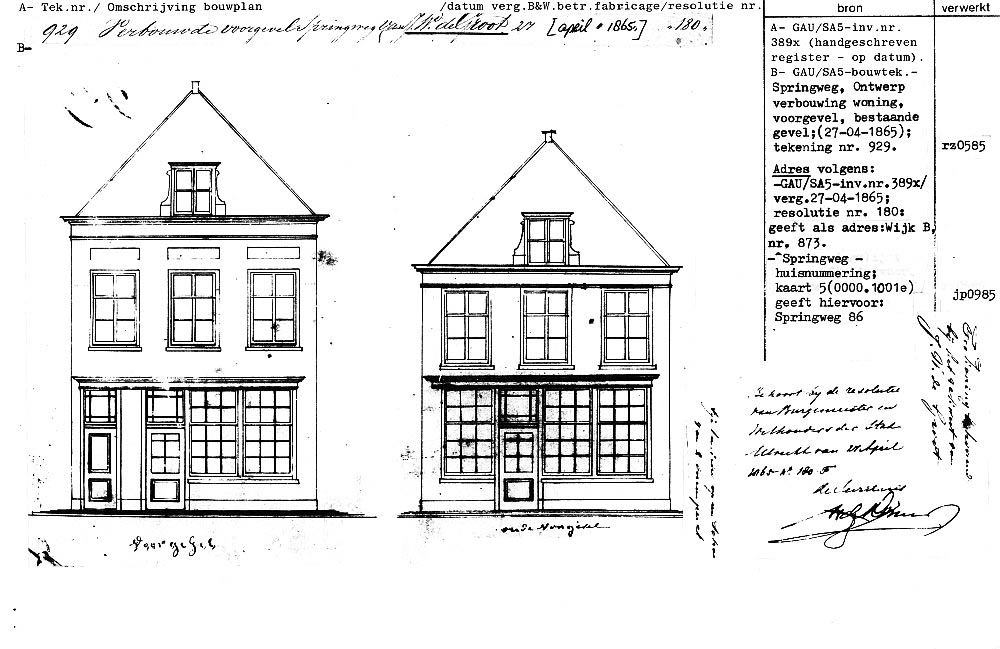 A- Tek.nr./ Omschrijving bouwplan /datum verg.B&W.betr.fabricage/resolutie nr.
929 Verbouwde voorgevel Springweg van J.W. de Groot 27 [april • 1865.] •180•
B-
bron
verwerkt
A- GAU/SA5-inv.nr.
389x (handgeschreven
register - op datum).
B- GAU/SA5-bouwtek.-
Springweg, Ontwerp
verbouwing woning,
voorgevel, bestaande
gevel;(27-04-1865);
tekening nr. 929.
rz0585
Adres volgens:
-GAU/SA5-inv.nr.389x/
verg.27-04-1865;
resolutie nr. 180:
geeft als adres:Wijk B,
nr. 873.
-Springweg -
huisnummering;
kaart 5(0000.1001e)
geeft hiervoor:
Springweg 86
jp0985
Voorgevel
oude Voorgevel
behoort bij de resolutie
van Burgemeester en
Wethouders der Stad
Utrecht van 27 April
1865 No 180 F
de Secretaris